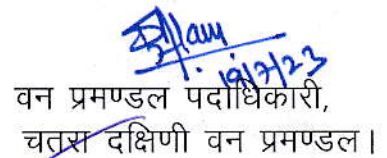 19/7/23
वन प्रमण्डल पदाधिकारी,
चतरा दक्षिणी वन प्रमण्डल।